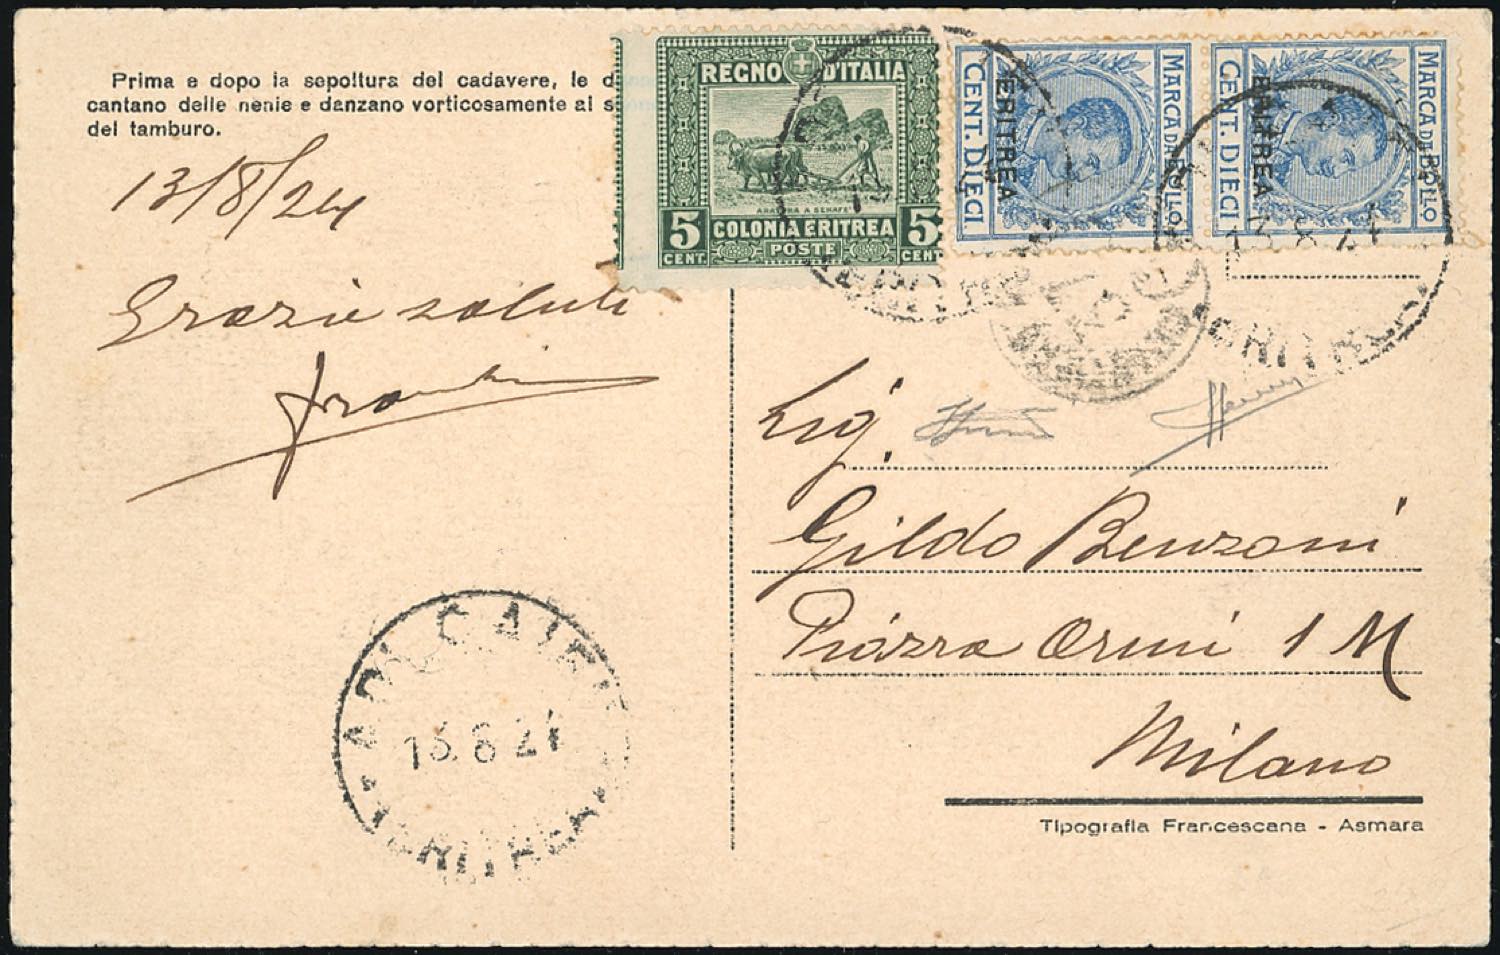 Prima e dopo la sepoltura del cadavere, le
cantano delle nenie e danzano vorticosamente al
del tamburo.
13/8/24
Grazie saluti
REGNO D'ITALIA
ARATURA A SENAFE
5 COLONIA ERITREA 5
CENT. POSTE CENT
MARCA DA BOLLO
CENT. DIECI
ERITREA
MARCA DA BOLLO
CENT. DIECI
ERITREA
Sig.
Gildo Benzoni
Piazza Ormi 1 M
Milano
Tipografia Francescana - Asmara
ADI CAIEH
13.8.24
ERITREA